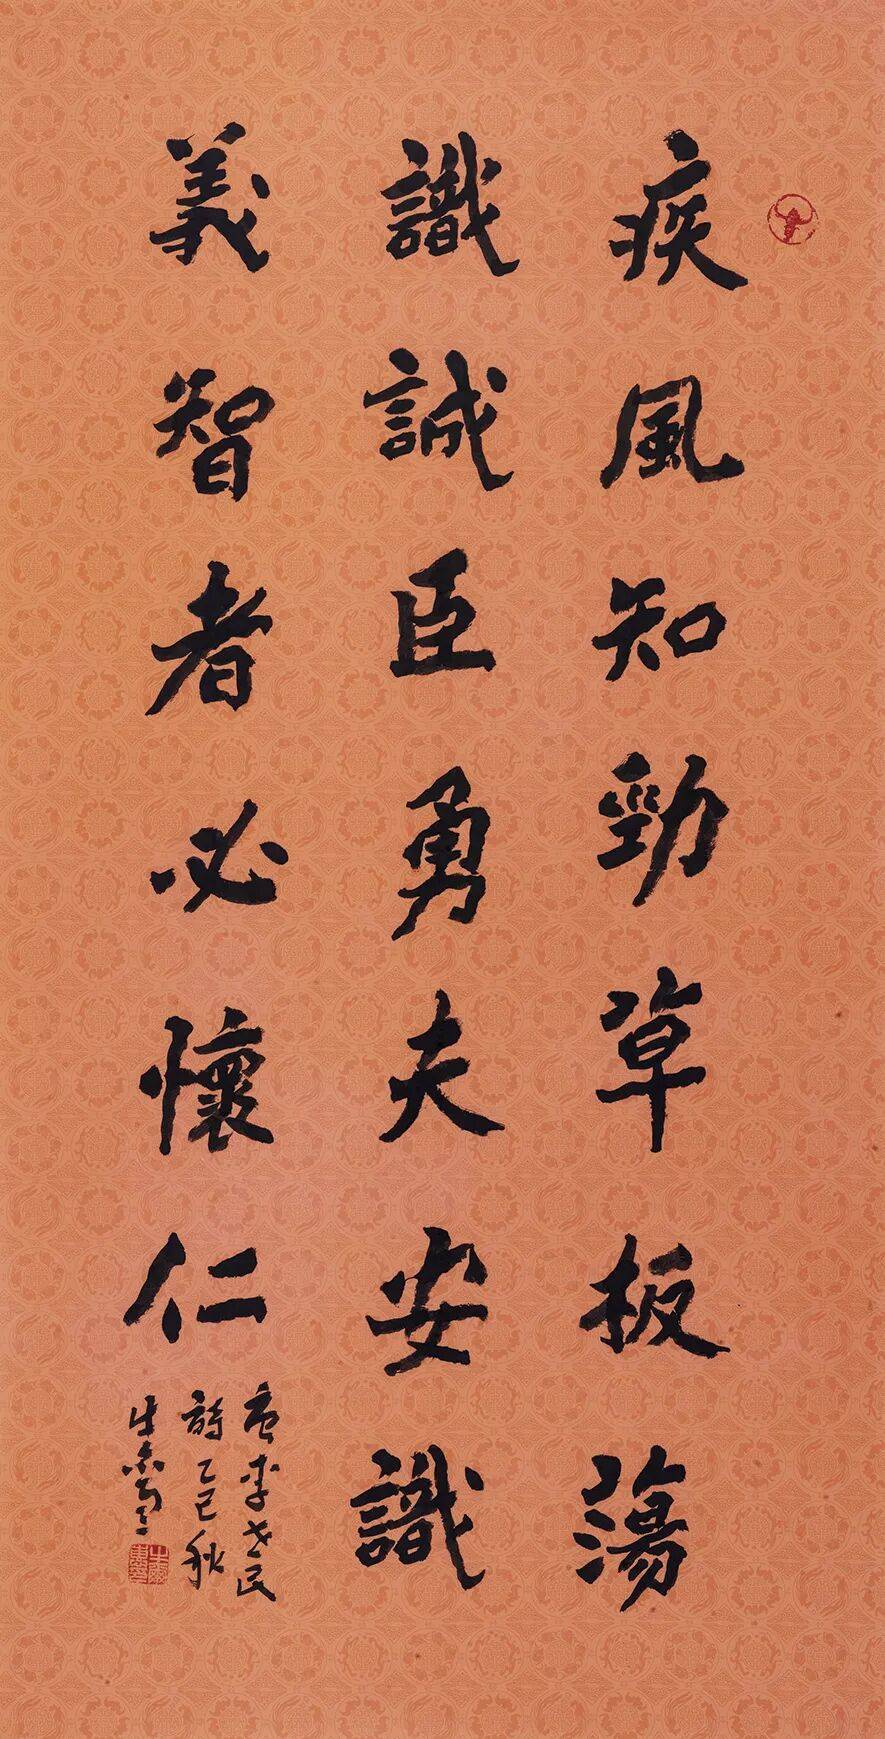 疾風知勁草板蕩
識誠臣勇夫安識
義智者必懷仁
唐李世民
詩乙巳秋